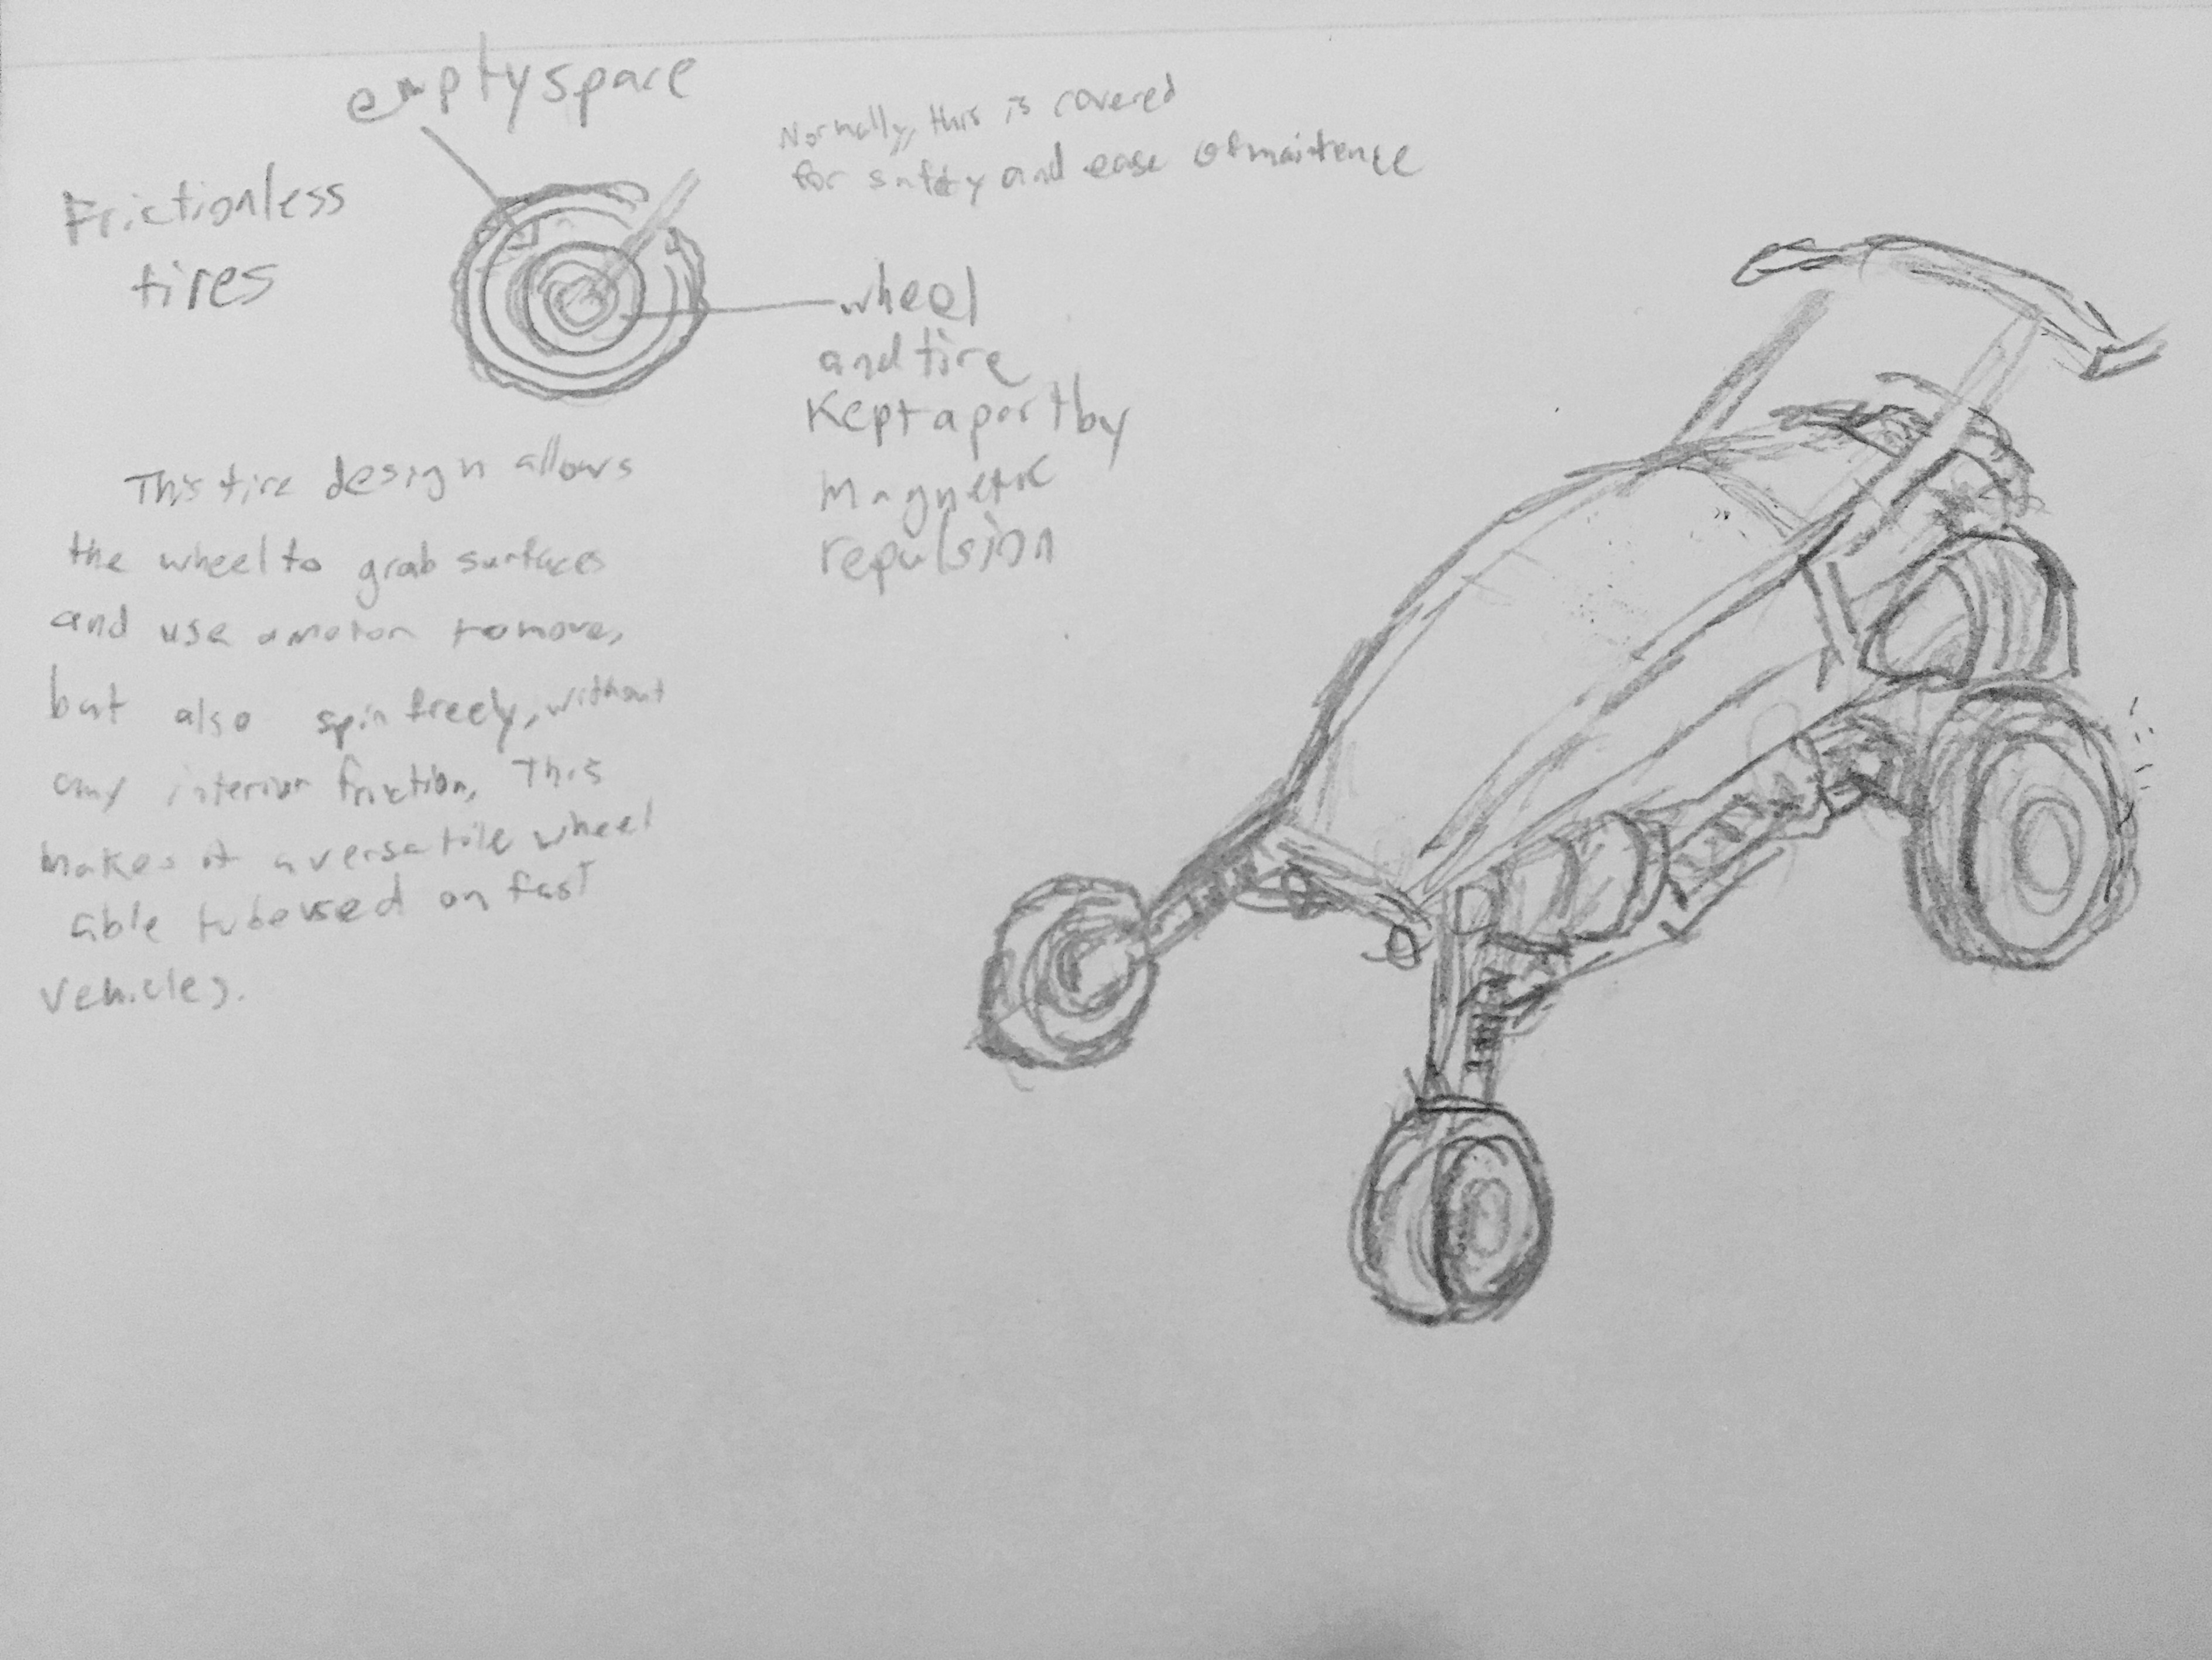 empty space
Normally, this is covered
for safety and ease of maintence
Frictionless
tires
wheel
and tire
Kept apart by
magnetic
repulsion
This tire design allows
the wheel to grab surfaces
and use a motor to move,
but also spin freely, without
any interior friction. This
makes it a versatile wheel
able to be used on fast
vehicles.